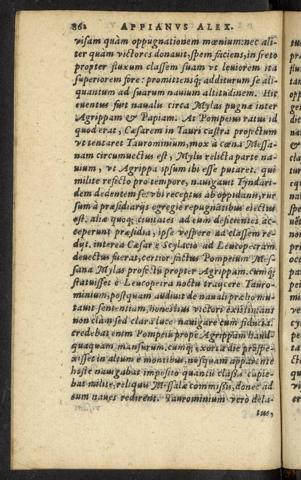 862 APPIANVS ALEX.
visam quàm oppugnationem mœnium: nec ali
ter quàm victores donauit, spem faciens, in freto
propter fluxum classem suam vt leuiorem ita
superiorem fore: promittensq; additurum se ali-
quantum ad suarum nauium altitudinem. Hic
euentus fuit naualis circa Mylas pugnæ inter
Agrippam & Papiam. At Pompeius ratus id
quod erat, Cæsarem in Tauri castra profectum
vt tentaret Tauromnium, mox à cœna Messa-
nam circumuectus est, Mylis relicta parte na-
uium, vt Agrippa ipsum ibi esse putaret. qui
milite refecto pro tempore, nauigauit Tyndari-
dem dedentem se: vbi receptus ab oppidanis, rur
sum à præsidiarijs egregiè repugnātibus eiectus
est. aliæ quoq; ciuitates ad eum deficientes ac-
ceperunt præsidia, ipse vespere ad classem re-
dijt. interea Cæsar è Scylacio ad Leucopetram
deuectus fuerat, certior factus Pompeium Mes-
sana Mylas profectū propter Agrippam. cumq;
statuisset è Leucopetra noctu traijcere Tauro-
minium, postquam audiuit de nauali prælio mu-
tauit sententiam, honestius victori existimans
non clàm sed clara luce nauigare cum fiducia.
credebat enim Pompeiū prope Agrippam haud-
quaquam mansurum. cumq; exorta die prospe-
xisset in altum è montibus, nusquam apparente
hoste nauigabat imposito quantū classis capie-
bat milite, reliquū Messalæ commissū, donec ad
eum naues redirent. Taurominium verò dela-
tus,